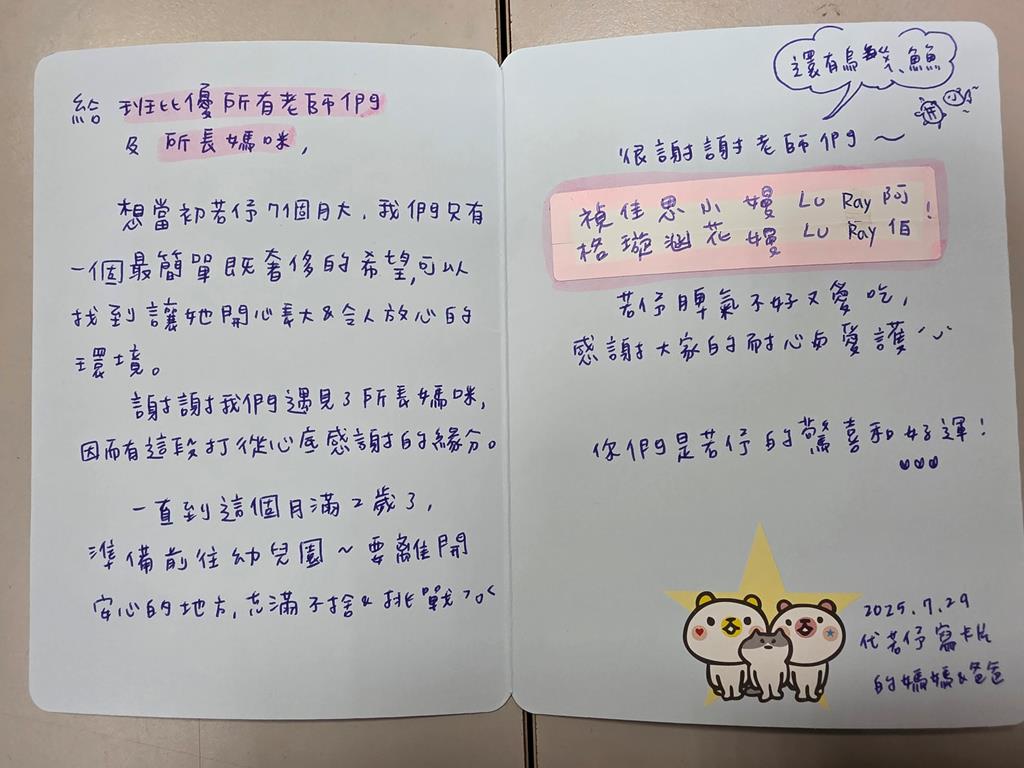 給 班比優所有老師們
及 所長媽咪,
想當初若伃7個月大,我們只有
一個最簡單既奢侈的希望,可以
找到讓她開心長大&令人放心的
環境。
謝謝我們遇見了所長媽咪,
因而有這段打從心底感謝的緣分。
一直到這個月滿2歲了,
準備前往幼兒園~要離開
安心的地方,充滿不捨&挑戰
還有烏龜、魚魚
很謝謝老師們~
禎佳思小嫚 LU Ray 阿!
格璇涵花嫚 LU Ray 佰
若伃脾氣不好又愛吃,
感謝大家的耐心與愛護
你們是若伃的驚喜和好運!
2025.7.29
代若伃寫卡片
的媽媽&爸爸